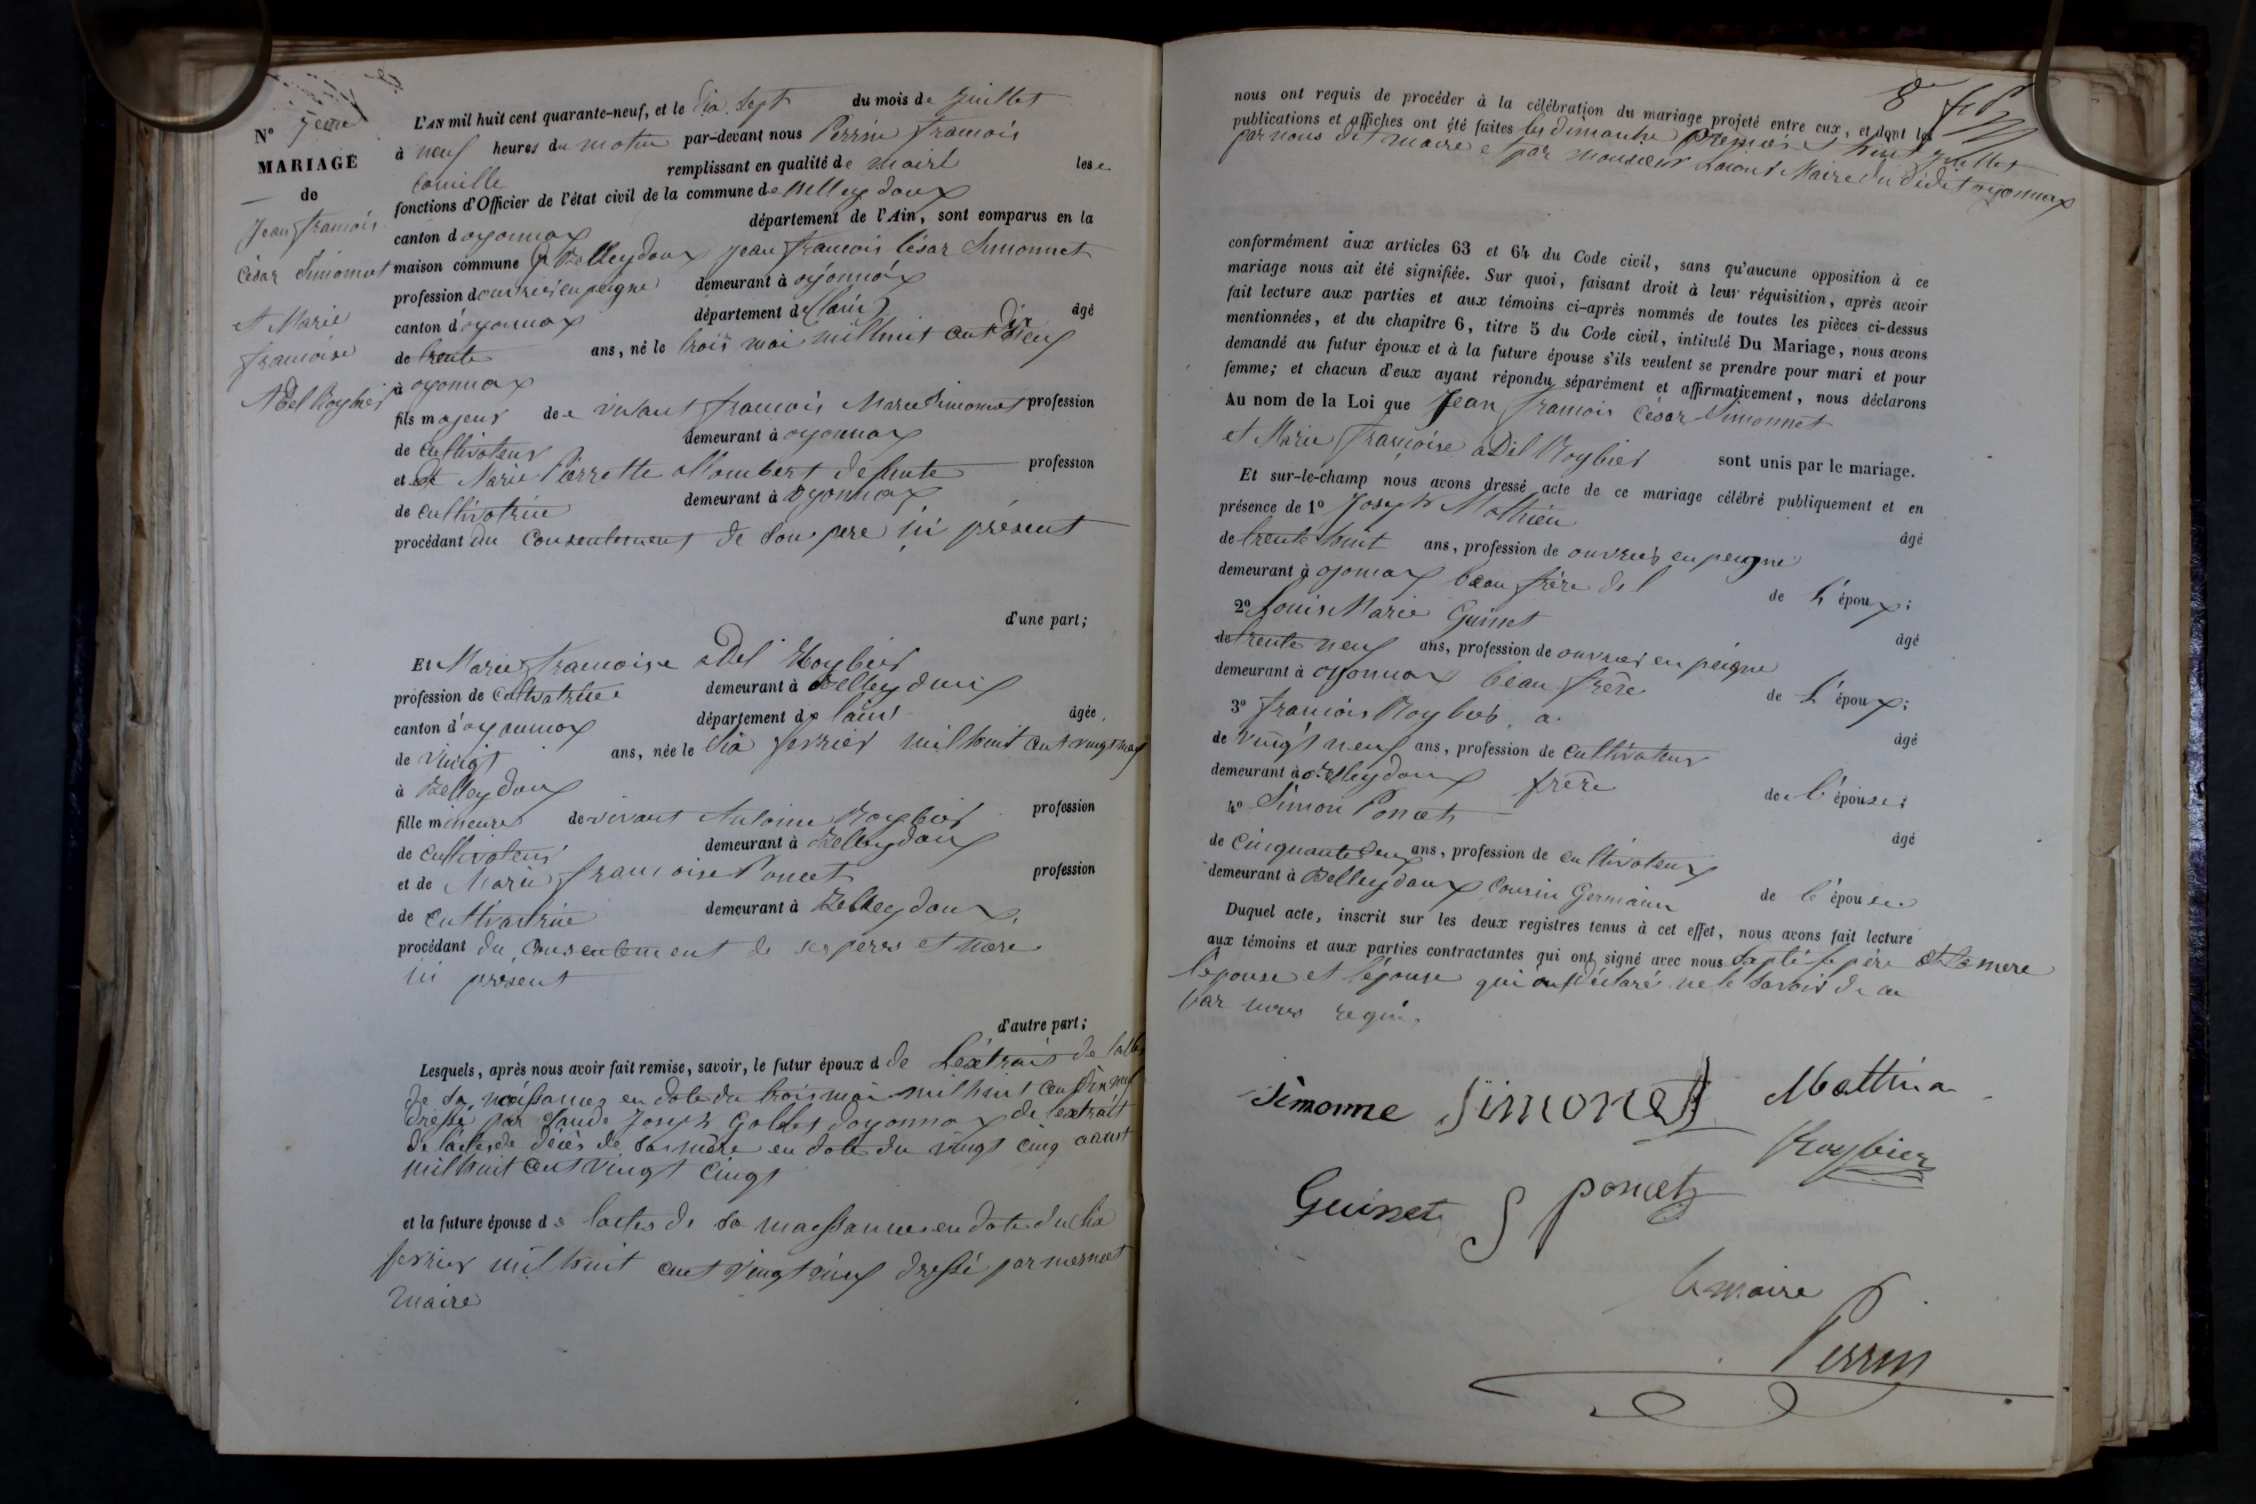 N° 7eme
MARIAGE
de
Jean francois
César Simonnet
et Marie
francoise
Adel Roybier
L'AN mil huit cent quarante-neuf, et le dix sept du mois de Juillet
à neuf heures du matin par-devant nous Perrin francois
Camille remplissant en qualité de maire les
fonctions d'Officier de l'état civil de la commune de Belleydoux
canton d oyonnax département de l'Ain, sont comparus en la
maison commune de Belleydoux Jean francois César Simonnet
profession d ouvrier en peigne demeurant à oyonnax
canton d'oyonnax département de (lain) âgé
de trente ans, né le trois mai mil huit cent dix neuf
à oyonnax
fils majeur de vivant francois Marie Simonnet profession
de cultivateur demeurant à oyonnax
et de Marie Pierrette Mombert defunte profession
de cultivatrice demeurant à oyonnax
procédant du consentement de son pere ici présent
d'une part;
Et Marie francoise Adel Roybier
profession de cultivatrice demeurant à Belleydoux
canton d'oyonnax département de lain âgée
de vingt ans, née le dix fevrier mil huit cent vingt neuf
à Belleydoux
fille mineure de vivant Antoine Roybier profession
de cultivateur demeurant à Belleydoux
et de Marie francoise Poncet profession
de cultivatrice demeurant à Belleydoux
procédant du consentement de ses peres et mere
ici present
d'autre part;
Lesquels, après nous avoir fait remise, savoir, le futur époux d de Léxtrait de lacte
de sa naissance en date du trois mai mil huit cent dix neuf
dressé par Claude Joseph d'oyonnax de lextrait
de lacte de décès de sa mère en date du vingt cinq aoust
mil huit cent vingt cinqt
et la future épouse de lactes de sa naissance en date du dix
fevrier mil huit cent vingt neuf dressé par mermet
maire
8
nous ont requis de procéder à la célébration du mariage projeté entre eux, et dont les
publications et affiches ont été faites les dimanche premier et huit juillet
par nous dit maire et par monsieur Maire du dédit oyonnax
conformément aux articles 63 et 64 du Code civil, sans qu'aucune opposition à ce
mariage nous ait été signifiée. Sur quoi, faisant droit à leur réquisition, après avoir
fait lecture aux parties et aux témoins ci-après nommés de toutes les pièces ci-dessus
mentionnées, et du chapitre 6, titre 5 du Code civil, intitulé Du Mariage, nous avons
demandé au futur époux et à la future épouse s'ils veulent se prendre pour mari et pour
femme; et chacun d'eux ayant répondu séparément et affirmativement, nous déclarons
Au nom de la Loi que Jean francois César Simonnet
et Marie françoise aDel Roybier sont unis par le mariage.
Et sur-le-champ nous avons dressé acte de ce mariage célébré publiquement et en
présence de 1° Joseph Mathieu âgé
de trente huit ans, profession de ouvrier en peigne
demeurant à oyonnax beau frère del de L'époux;
2° Louis Marie Guinet âgé
de trente neuf ans, profession de ouvrier en peigne
demeurant à oyonnax beau frère de L'époux;
3° francois Roybier a. âgé
de vingt neuf ans, profession de cultivateur
demeurant à Belleydoux frère de l'épouse;
4° Simon Poncet âgé
de cinquante deux ans, profession de cultivateur
demeurant à Belleydoux Cousin Germain de l'épouse
Duquel acte, inscrit sur les deux registres tenus à cet effet, nous avons fait lecture
aux témoins et aux parties contractantes qui ont signé avec nous père et la mere
lepouse et lépouse qui ont déclaré ne le savoir de ce
par nous requi.
Simonne Simonet Mattieu
Roybier
Guinet S poncet
le maire
Perrin